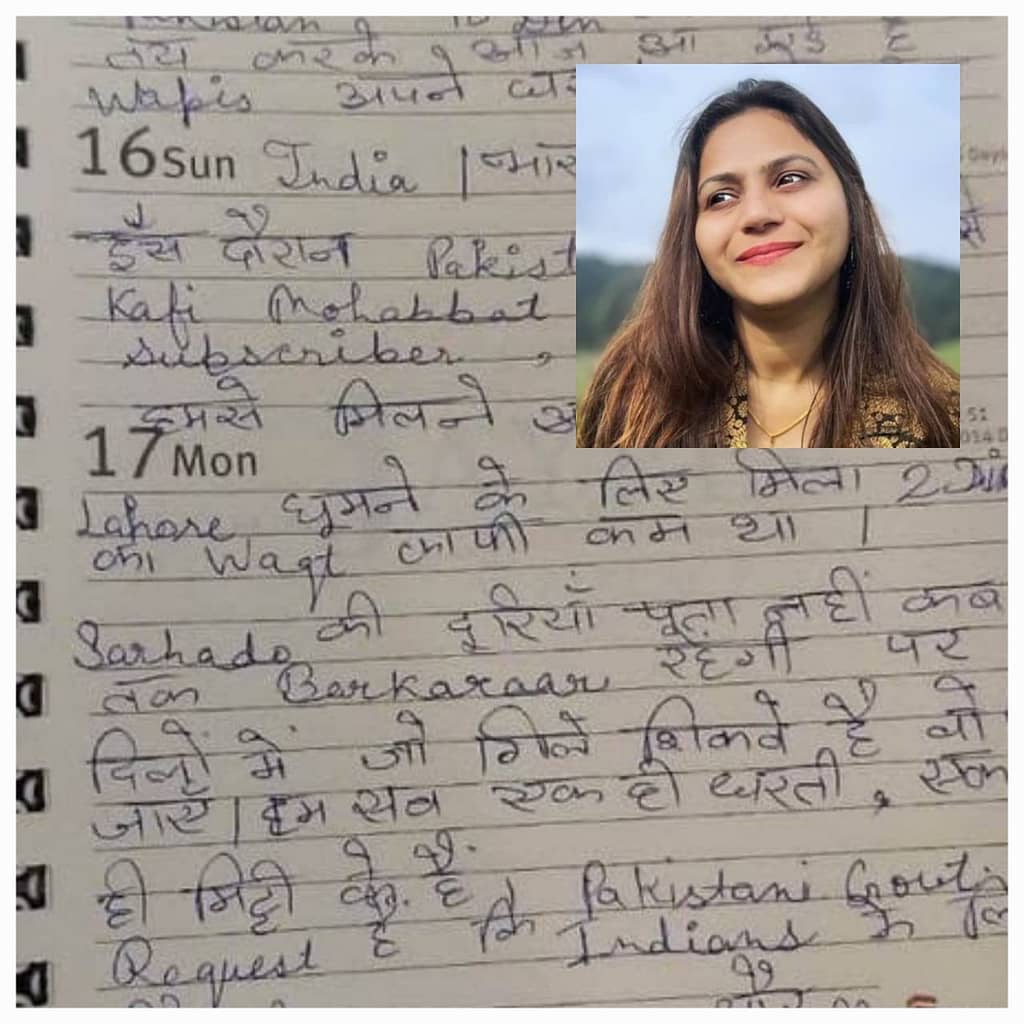 Pakistan 10 Din
तय करके, आज आ चुके है
Wapis अपने
16 Sun India | भार
इस दौरान Pakist
Kafi Mohabbat
subscriber,
हमसे मिलने
17 Mon
Lahore घूमने के लिए मिला 2 Din
का Waqt काफी कम था |
Sarhado की दूरियाँ पता नहीं कब
तक Barkaraar रहेगी पर
दिलों में जो गिले शिकवे है वो
जाए | हम सब एक ही धरती, एक
ही मिट्टी के है.
Pakistani Govt. से
Request है कि Indians के